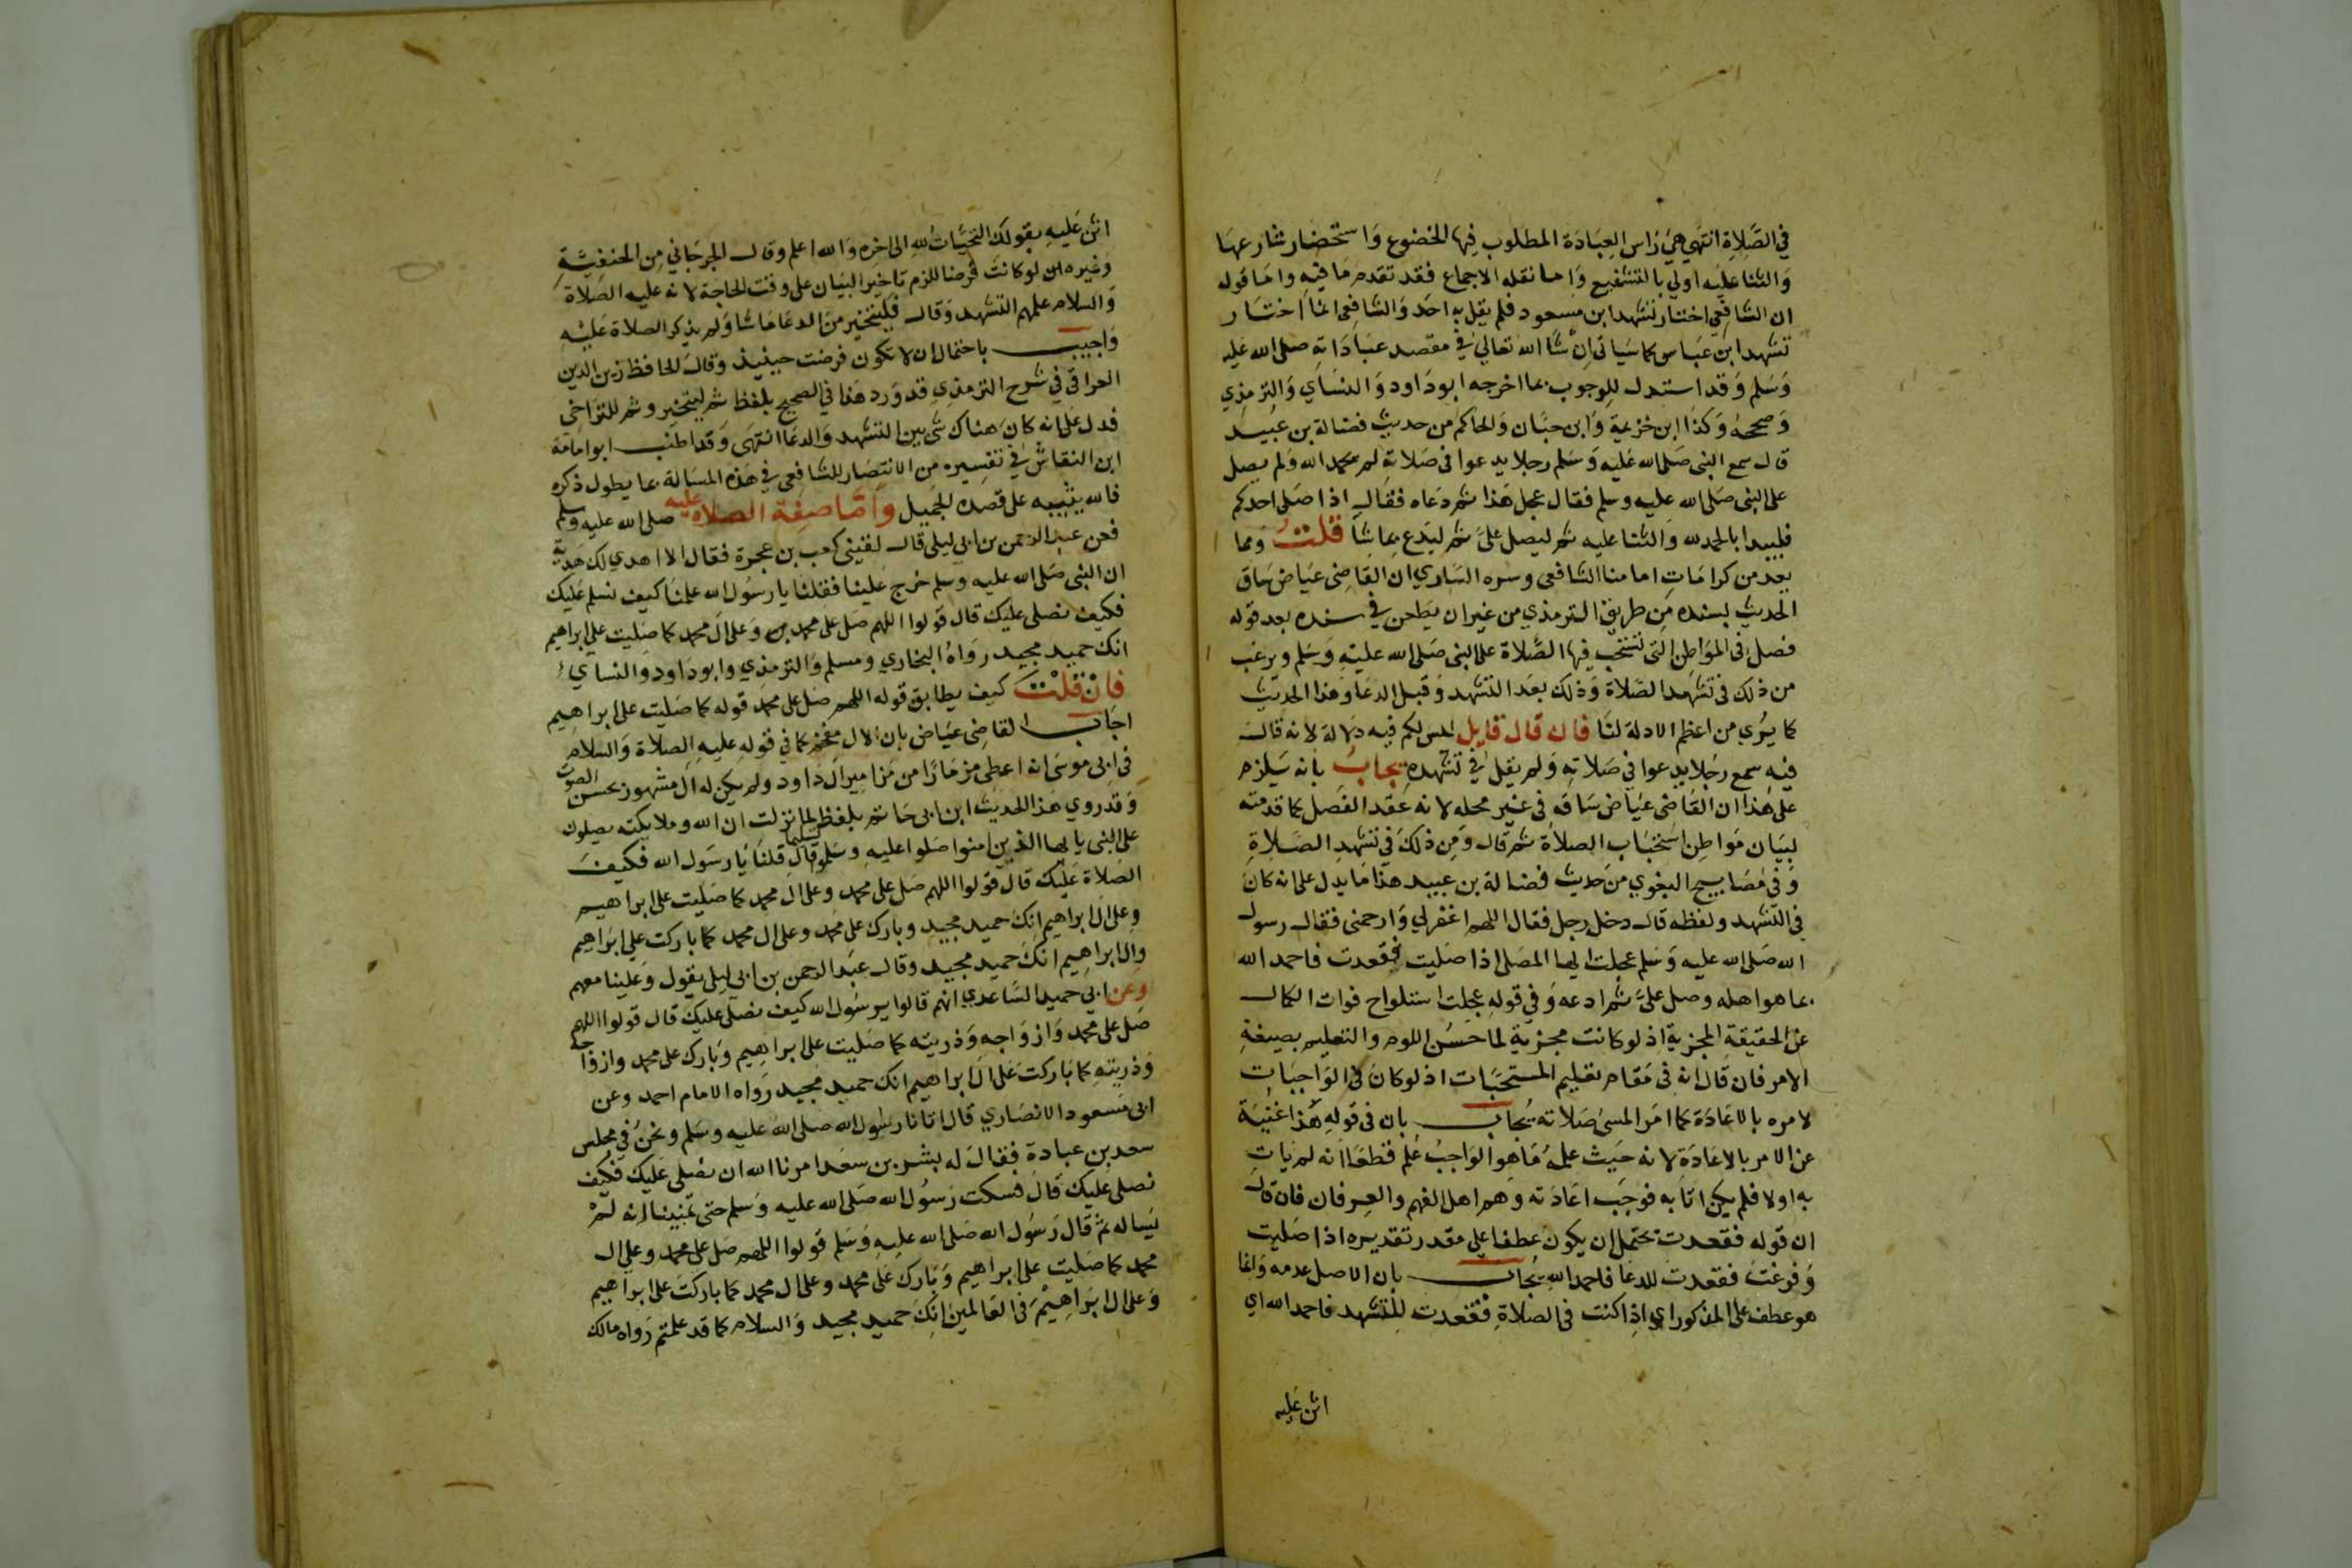 في الصَّلاة انتهي هي رَاس العِبَادَة المطلوب فيها الخضوع وَاستحضار شارعها
وَالثنا عليه اولي بالتشفيع وَاما نقله الاجماع فقد تقدم مَا فيه واما قوله
ان الشافعي اختار تشهد ابن مسعود فلم يقل به احد وَالشافعي انما اختار
تشهد ابن عباس كما سَياتي ان شا الله تعالي في مقصد عبَادَاته صلى الله عليه
وَسَلم وَقد استدل للوجوب بما اخرجه ابو دَاود وَالنسَاي وَالترمذي
وَصححه وَكذا ابن خزيمة وَابن حبَّان وَالحاكم من حديث فضالة بن عبيد
قال سمع النبى صَلى الله عَليه وَسَلم رجلا يدعوا فى صَلاته لم يحمد الله وَلم يصل
على النبى صَلى الله عليه وسلم فقال عجل هَذا ثم دَعاه فقال اذا صَلى احدكم
فليبدا بالحمد لله وَالثنا عليه ثم ليصل علىَّ ثم ليدع بما شا قلت ومما
يعد من كرامَات امامنا الشافعى وسره السَّاري ان القاضى عيَاض سَاق
الحديث بسنده مِن طريق الترمذي من غير ان يطعن في سنده بعد قوله
فصل فى المواطن التى تستحب فيها الصَّلاة على النبى صَلى الله عليه وَسَلم ويرغب
من ذلك فى تشهد الصَّلاة وَذلك بعد التشهد وَقبل الدعَا وَهذا الحديث
كما يُرى من اعظم الادلة لنَا فان قال قايل ليس لكم فيه دَلالة لانه قال
فيه سمع رَجلا يدعوا في صَلاته وَلم يقل في تشهده يجابُ بانه يَلزم
على هذا ان القاضى عيَاض سَاقه فى غير محله لانه عقد الفصل كما قدمته
لبيَان مَواطن استحبَاب الصلاة ثم قال وَمن ذلك فى تشهد الصَّلاةِ
وَفى مصَابيح البغوي من حديث فضالة بن عبيد هذا مَا يدل على انه كان
فى التشهد ولفظه قال دخل رجل فقال اللهم اغفر لي وَارحمنى فقال رسول
الله صَلى الله عليه وَسَلم عجلت ايها المصَلى اذا صَليت فقعدت فاحمد الله
بما هو اهله وصل علىَّ ثم ادعه وَفي قوله عجلت استلواح فوات الكمال
عن الحقيقة المجزية اذ لو كانت مجزية لما حَسُن اللوم والتعليم بصيغة
الامر فان قال انه فى مَقام تعليم المستحبَّات اذ لو كان في الوَاجبَات
لامره بالاعَادَة كما امر المسىٔ صَلاته يُجاب بان فى قوله هَذا غنيَة
عن الامر بالاعَادَة لانه حَيث علمهُ مَا هو الوَاجبُ عُلم قطعًا انه لم يَات
به اولا فلم يكن اتَا به فوجَبَ اعَادَته وَهم اهل الفهم والعِرفان فان قال
ان قوله فقعدت يحتمل ان يكون عطفا علي مقدر تقديره اذا صَليت
وَفرغت فقعدت للدعا فاحمد الله يُجاب بان الاصل عدمه وَانما
هو عطف على المذكور اي اذا كنت فى الصلاة فقعدت للتشهد فاحمد الله اي
اثن عليه
اثن عَليه بقولك التحيَّات لله الى اخره وَالله اعلم وقال الجرجاني من الحنفيَّةِ
وَغيره ان لو كانت فرضا للزم تاخير البيَان على وقت الحاجة لانه عليه الصَلاة
وَالسلام علمهم التشهد وَقال فليتخير منَ الدعَا مَا شا وَلم يذكر الصلاة عَليْه
وَاجيب باحتمال ان لا تكون فرضت حينيذ وَقال الحافظ زين الدين
العراقى في شرح الترمذي قد وَرد هَذا في الصحيح بلفظ ثم ليتخير وثم للتراخى
فدل عَلي انه كانَ هناك شئ بين التشهد وَالدعَا انتهَى وَقد اطنب ابو امامَة
ابن النقاش في تفسِيره من الانتصَار للشافعى في هَذه المسَالة بما يطول ذكره
فالله يثيبه على قصده الجَميل وَامَّا صفة الصلاة عليه صلى الله عليه وَسلم
فعن عبد الرحمن بن ابى ليلى قال لقينى كعب بن عجرة فقال الا اهدي لك هدية
ان النبى صَلى الله عليه وسلم خرج عَلينا فقلنا يا رسُول الله علمنَا كيف نسلم عَليك
فكيف نصلى عليك قال قولوا اللهم صَل على محمد وَعلى ال محمد كما صَليت على ابراهيم
انك حميد مجيد رَوَاهُ البخاري ومسلم وَالترمذي وابو دَاود والنسَاي
فان قلت كيف يطابق قوله اللهم صَل على محمَد قوله كما صَليت على ابراهيم
اجَاب القاضى عيَاض بان الال مقحم كما في قوله عليه الصَلاة وَالسَلام
فى ابى موسَى انه اعطى مزمَارًا من مَزامير ال دَاود ولم يكن له ال مشهور بحسن الصوت
وَقد روي هَذا الحديث ابن ابى حَاتم بلفظ لما نزلت ان الله وملايكته يصلون
على النبى يا ايها الذين امنوا صَلوا عليه وسَلموا تسليما قال قلنَا يَا رسَول الله فكيف
الصَلاة عَليك قال قولوا اللهم صَل على محمد وعلى ال محمد كما صَليت على ابراهيم
وعلى ال ابراهيم انك حميد مجيد وبارك على محمد وعلى ال محمد كما باركت علي ابرَاهيم
وال ابراهِيم انك حميد مجيد وقال عبَد الرحمن بن ابي ليلى يقول وَعَلينا معهم
وعن ابي حميد السَّاعدي انهم قالوا يرسُول الله كيف نصلى عليك قال قولوا اللهم
صَل على محمد وَازوَاجه وَذريته كما صَليت على ابراهِيم وَبارك على محمد وازواجه
وَذريتهِ كما بَاركت عَلى ال ابراهيم انك حميد مجيد رَواه الامام احمد وعن
ابى مَسعود الانصَاري قال اتانا رسُول الله صلى الله عليه وسَلم ونحنُ في مجلس
سعد بن عبادة فقالَ له بشر بن سعَد امرنا الله ان نصَلى عَليك فكيف
نصلى عليك قال فسكت رَسوُل الله صَلى الله عليه وَسَلم حتى تمنينا انه لمْ
يَساله ثم قال رَسُول الله صَلى الله عليه وَسَلم قولوا اللهم صَل على محمد وعلى ال
محمد كما صَليت على ابراهيم وَبَارك عَلى محمد وعلى ال محمد كما باركت على ابرَاهيم
وَعلى ال ابَراهِيْم فى العَالمين انِكَ حميد مجيد وَالسلام كما قد علمتم رَواه مالك